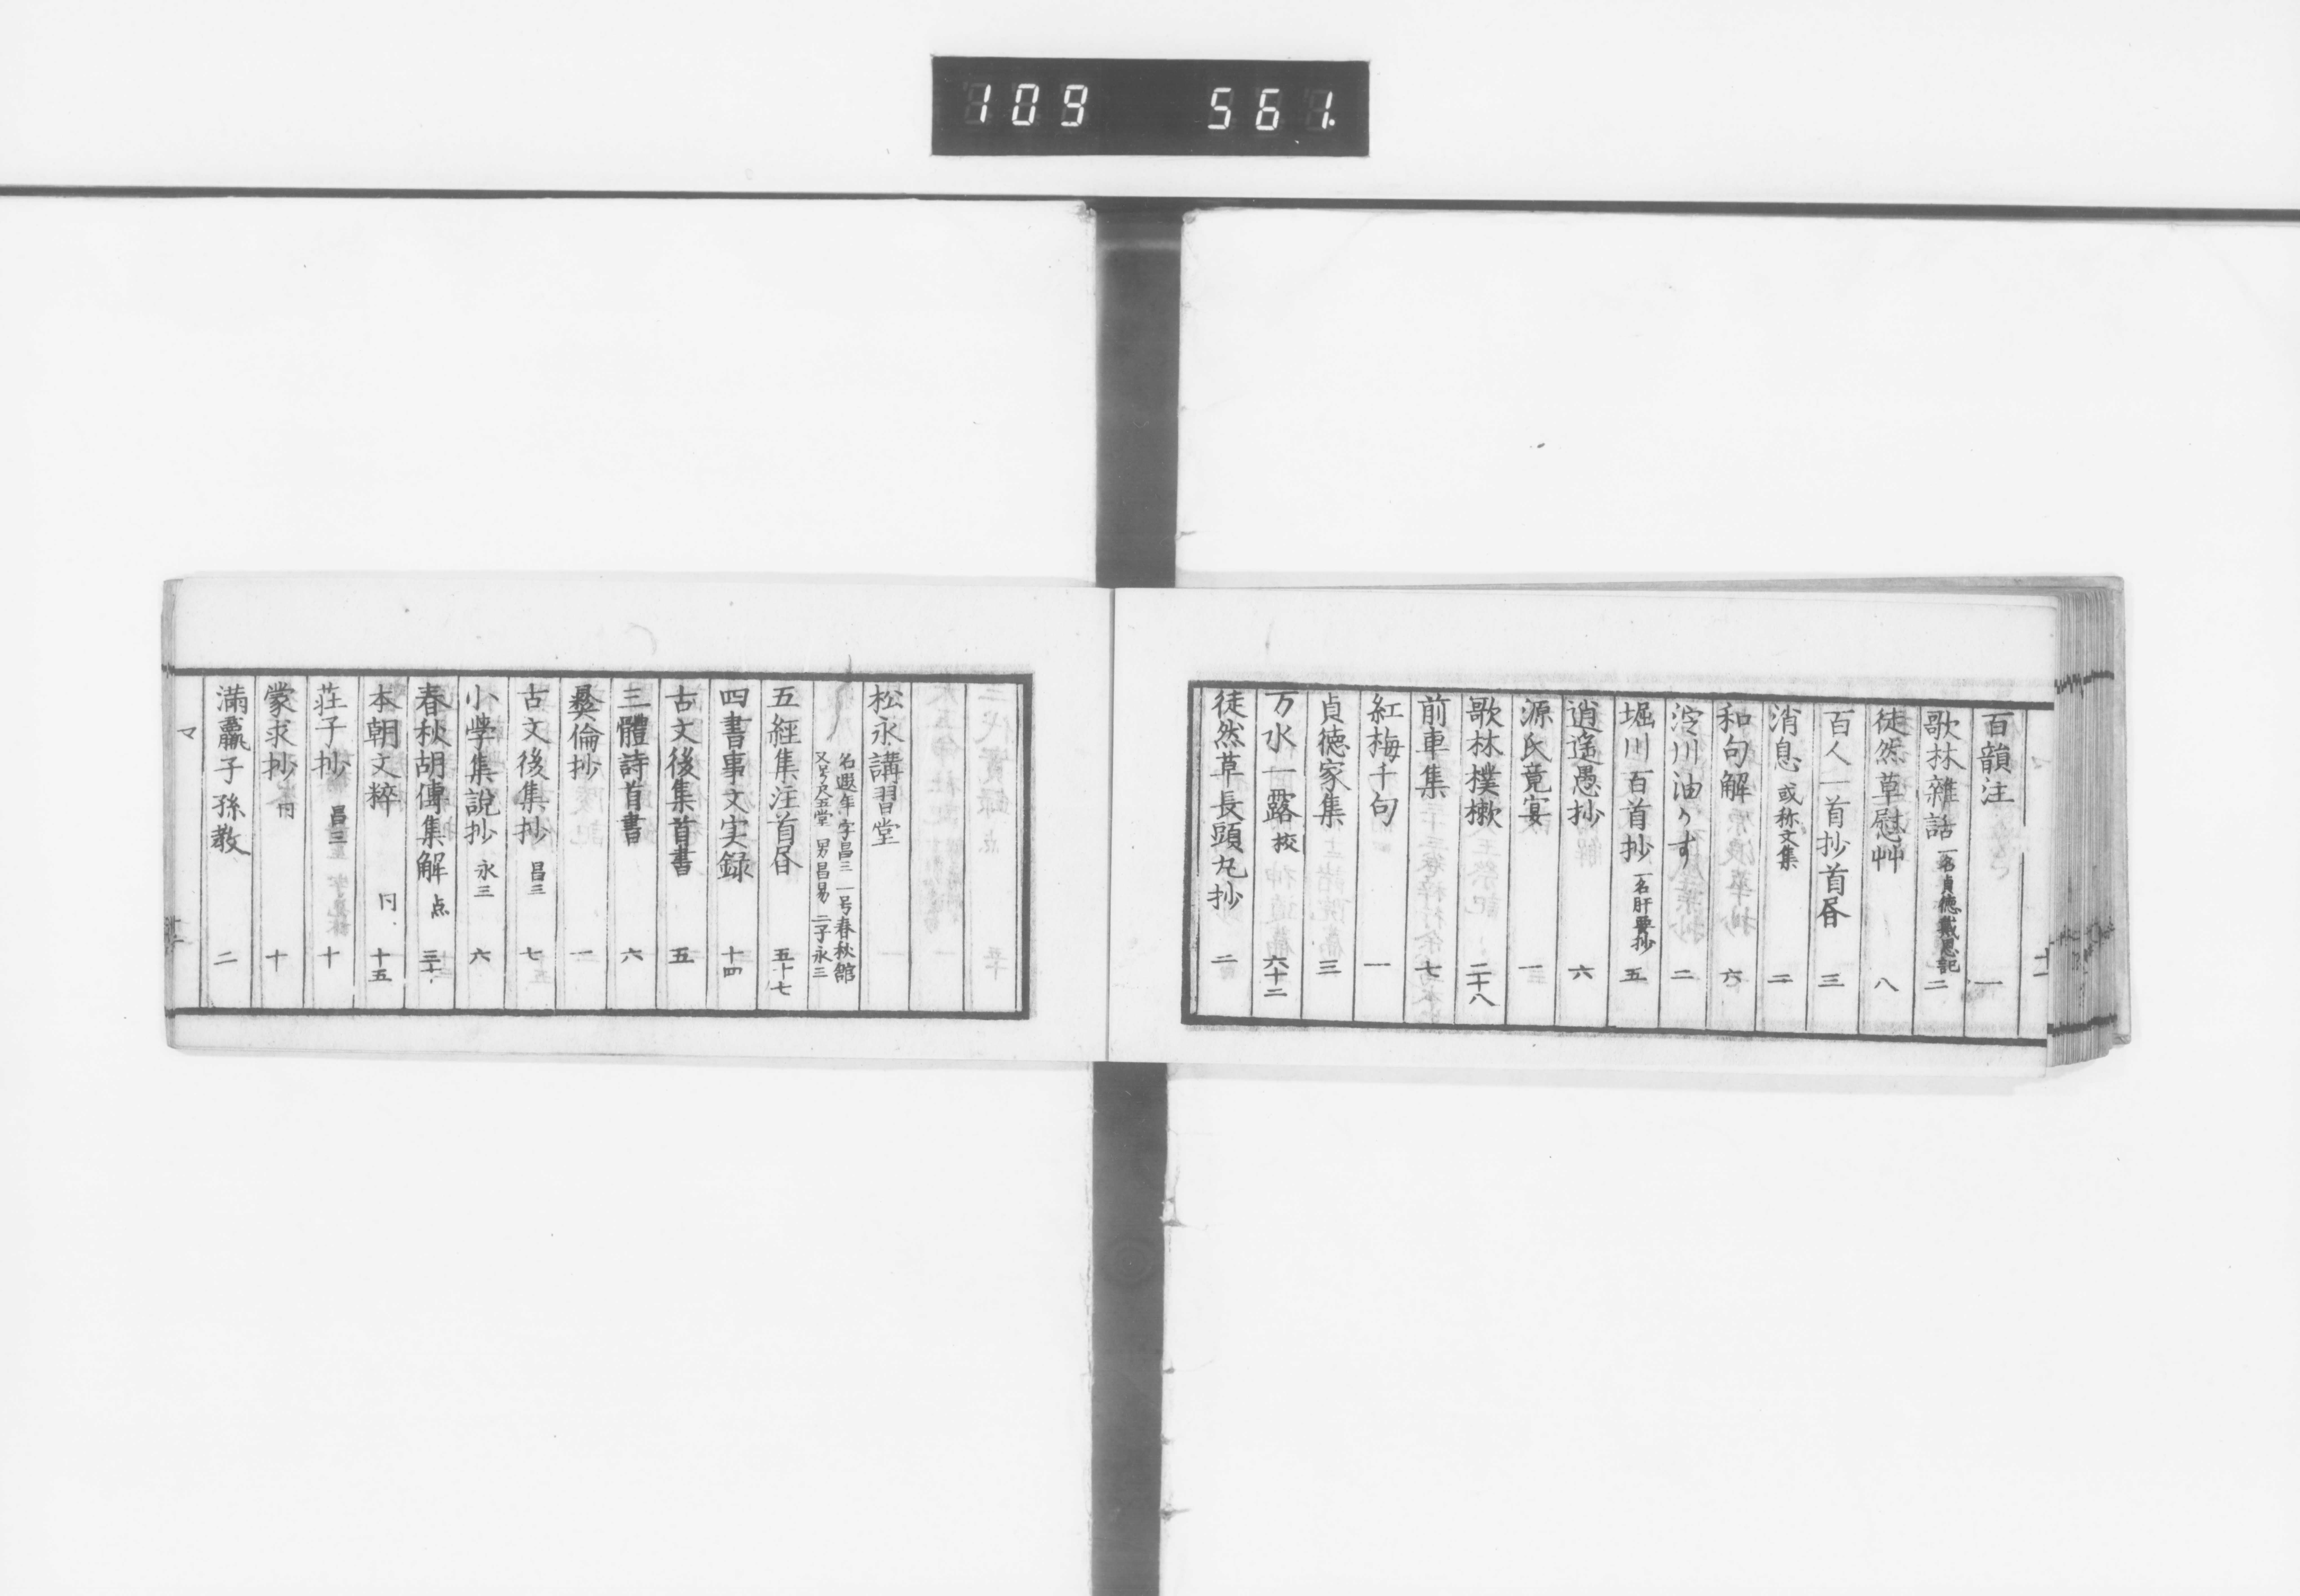 109 561.
百韻注 一
歌林雑話 一名貞徳戴恩記 二
徒然草慰艸 八
百人一首抄首昏 三
消息 或称文集 二
和句解 六
淀川油かす 二
堀川百首抄 一名肝要抄 五
逍遥愚抄 六
源氏竟宴 一
歌林樸樕 二十八
前車集 七
紅梅千句 一
貞徳家集 三
万水一露 挍 六十二
徒然草長頭丸抄 二
松永講習堂
名遐年字昌三 一号春秋館
又号尺五堂 男昌易 二子永三
五經集注首昏 五十七
四書事文実録 十四
三體詩首書 六
古文後集首書 五
彜倫抄 一
古文後集抄 昌三 七
小学集説抄 永三 六
春秋胡傳集解 点 三十
本朝文粹 仝 十五
荘子抄 昌三 十
蒙求抄 十
満籯子孫教 二
マ